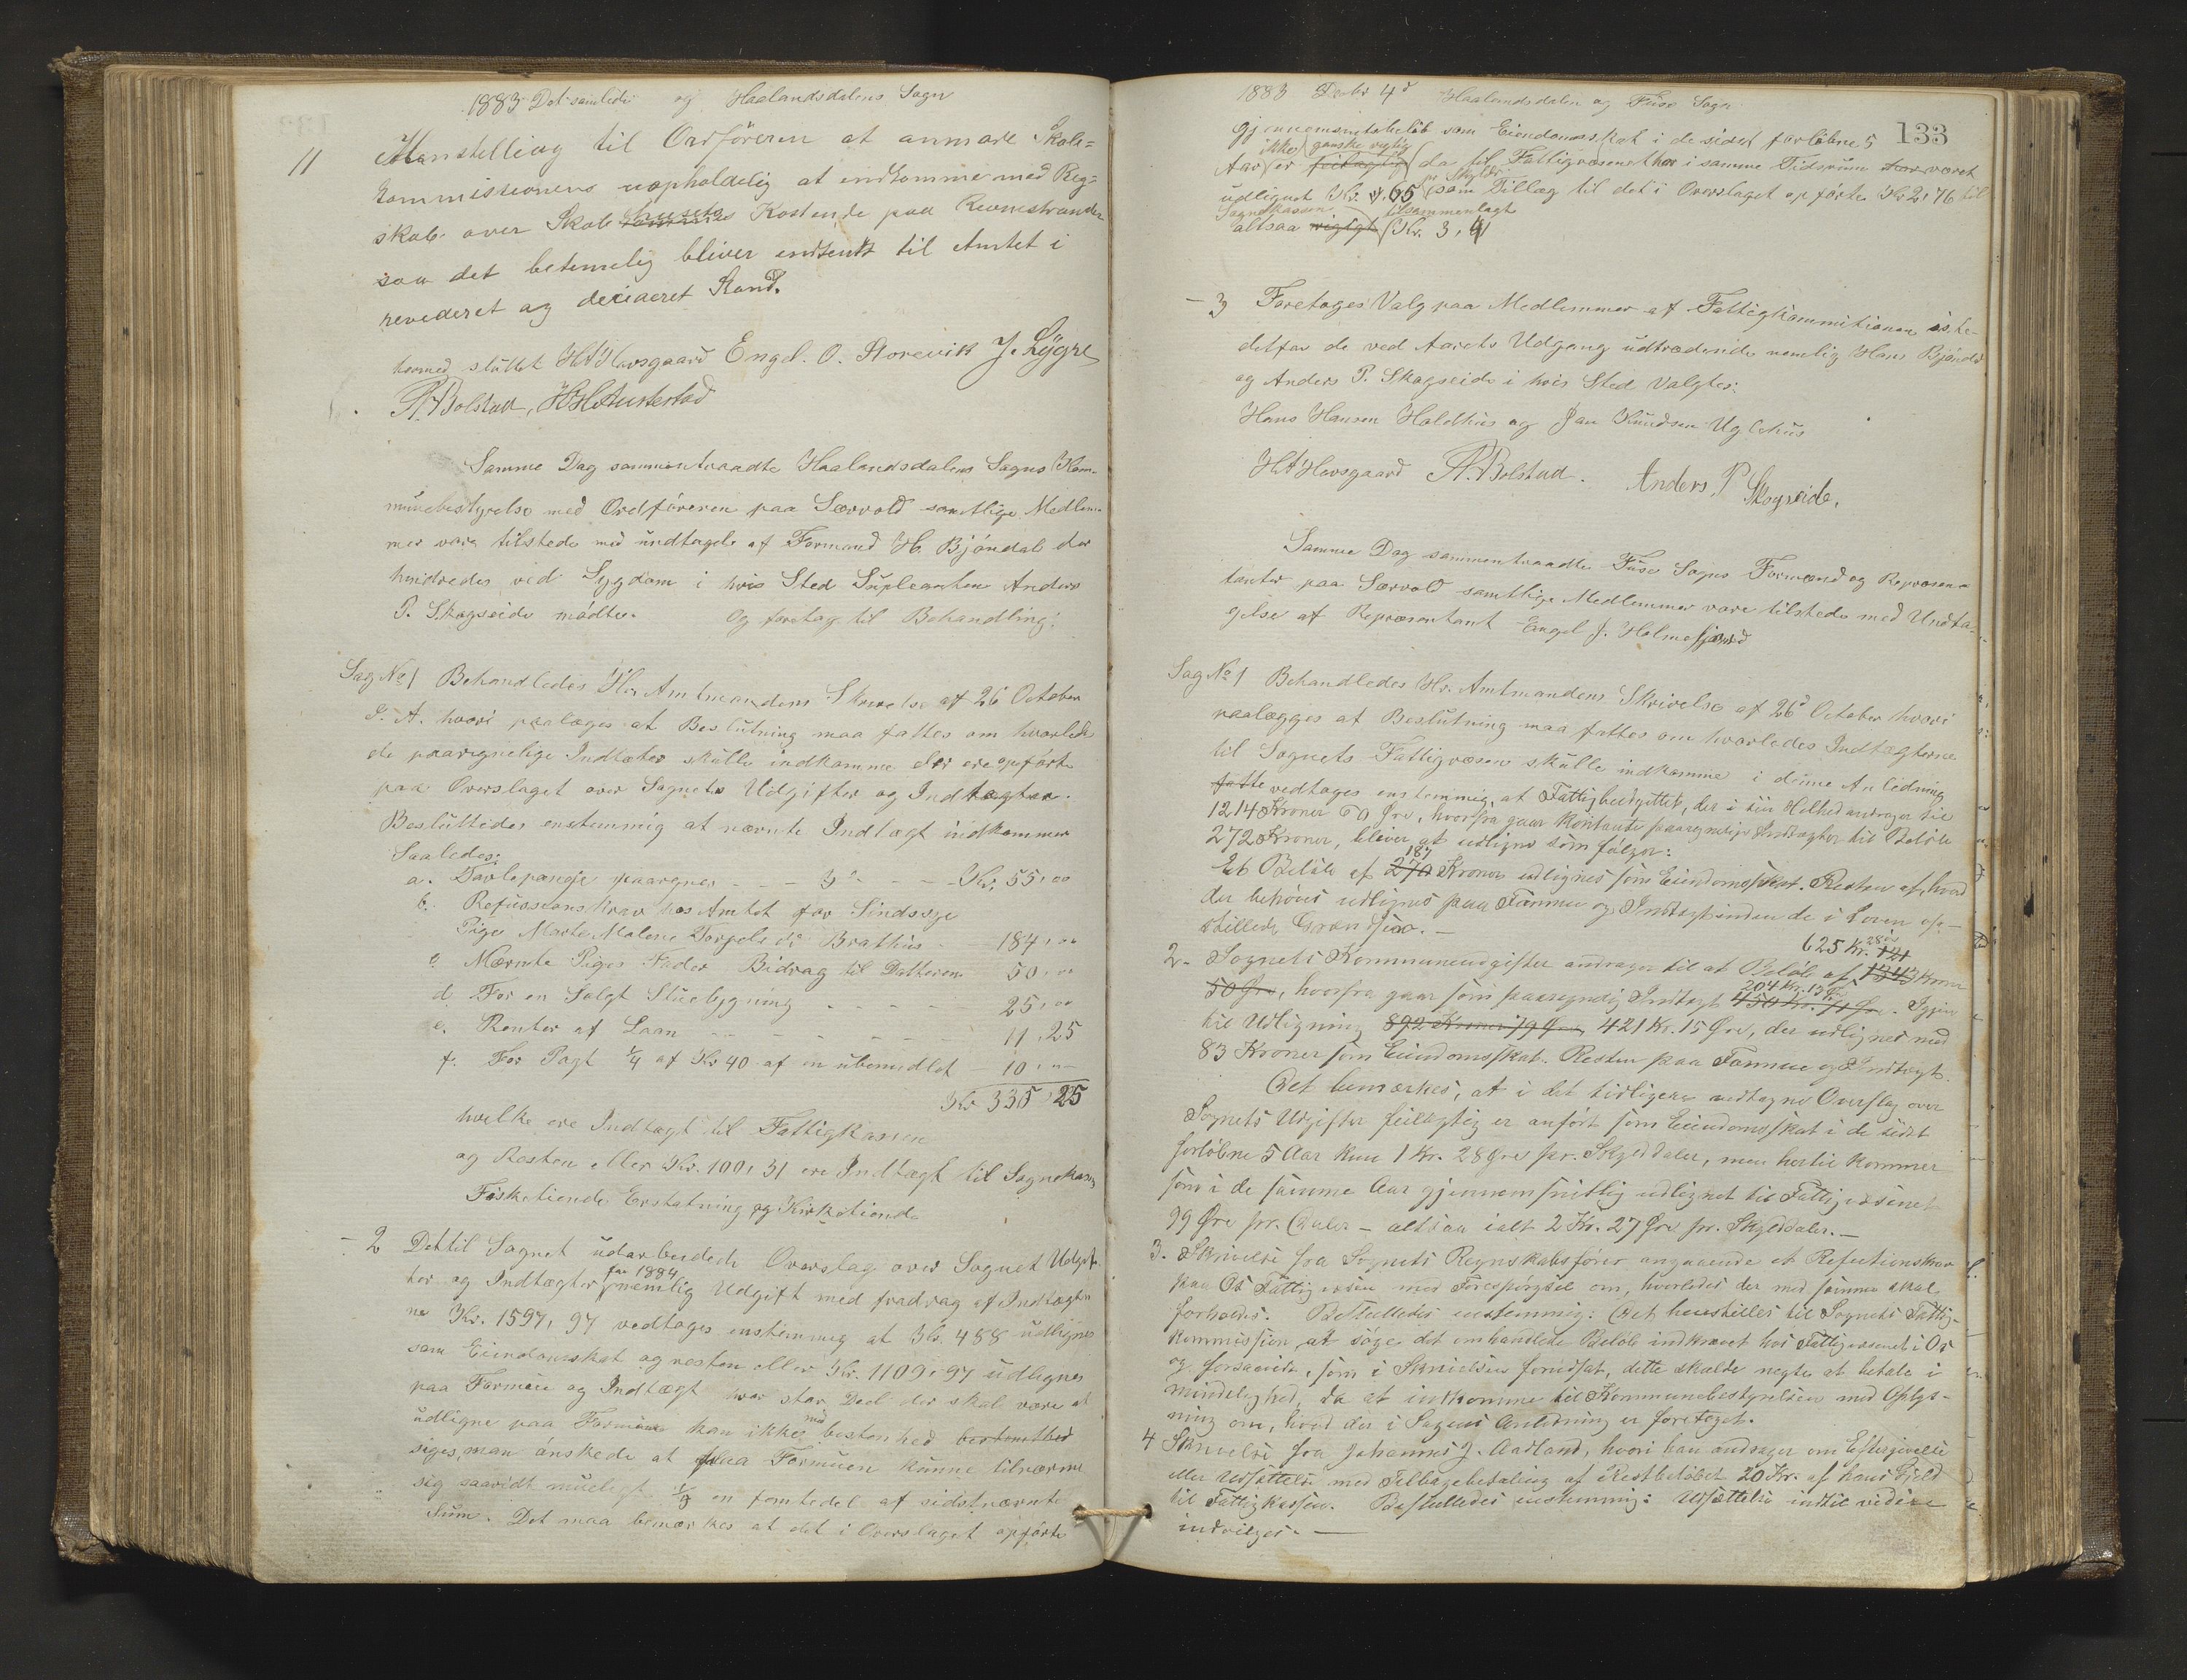 1883 Det samlede og Haalandsdalens Sogn
11 Henstilling til Ordföreren at anmode Skole=
kommissionens uopholdelig at indkomme med Reg=
skab over Skolehusets Kostende paa Revnestranden
saa det betimelig bliver indsendt til Amtet i
revederet og decideret Stand.
hermed sluttet H A Hovsgaard Engel. O. Storevik J. Lygre
P. Bolstad, H H Austestad
Samme Dag sammentraadte Haalandsdalens Sogns Kom-
munebestyrelse med Ordföreren paa Særvold samtlige Medlem-
mer vare tilstede med undtagelse af Formand H. Bjöndal der
hindredes ved Sygdom i hvis Sted Supleanten Anders
P. Skogseide mödte. Og foretag til Behandling:
Sag No 1 Behandledes Hr. Amtmandens Skrivelse af 26 October
d. A. hvori paalæges at Beslutning maa fattes om hvorledes
de paaregnelige Indtæter skulle indkomme der ere opförte
paa Overslaget over Sognets Udgifter og Indtægter.
Besluttedes enstemmig at nævnte Indtægt indkommer
Saaledes:
a. Tavlepænge paaregnes - - - - - Kr. 55,00
b. Refusionskrav hos Amtet for Sindsyge
Pige Marte Malene Torgels d. Brathus - 184,00
c. Nævnte Piges Fader Bidrag til Datteren 50,00
d. For en Solgt Stuebygning - - - - 25,00
e. Renter af Laan - - - - - - 11,25
f. For Pagt 1/4 af Kr 40 af en ubemidlet - 10,00
Kr 335,25
hvilke ere Indtægt til Fattigkassen
og Resten eller Kr. 100,31 ere Indtægt til Sognekassen
Fisketiende Erstatning og Kirketiende
- 2 Det til Sognet udarbeidede Overslag over Sognet Udgif-
ter og Indtægter for 1884 nemlig Udgift med fradrag af Indtægter
ne Kr. 1597,97 vedtoges enstemmig at Kr. 488 udlignes
som Eiendomsskat og resten eller Kr. 1109,97 udlignes
paa Formue og Indtægt hvor stor Deel der skal være at
udligne paa Formuen kan ikke med bestemhed bestemthed
siges, man önskede at paa Formuen kunne tilnærme
sig saavidt mueligt 1/5 en femtedel af sidstnævnte
Sum. Det maa bemærkes at det i Overslaget opförte
1883 Decbr 4d Haalandsdalen og Fuse Sogn
133
gjennemsnitsbelöb som Eiendomsskat i de sidst forlöbne 5
Aar er ikke ganske rigtig feilagtig da til Fattigvæsenet har i samme Tidsrum har været
udlignet Kr. 0,65 pr Skylddr som Tillæg til det i Overslaget opförte Kr 2,76 til
Sognekassen altsaa rigtigt tilsammenlagt Kr. 3,41
- 3 Foretoges Valg paa Medlemmer af Fattigkommitionen iste-
detfor de ved Aarets Udgang udtrædende nemlig Hans Bjöndal
og Anders P. Skogseide i hvis Sted Valgtes:
Hans Hansen Holdhus og Jan Knudsen Uglehus
H A Hovsgaard P. Bolstad. Anders. P Skogseide.
Samme Dag sammentraadte Fuse Sogns Formænd og Repræsen-
tanter paa Særvold samtlige Medlemmer vare tilstede med Undta-
gelse af Repræsentant Engel J. Holmefjord
Sag No 1 Behandledes Hr. Amtmandens Skrivelse af 26d October hvori
paalægges at Beslutning maa fattes om hvorledes Indtægterne
til Sognets Fattigvæsen skulle indkomme i denne Anledning
fatte vedtoges enstemmig, at Fattigbudgettet, der i sin Helhed andrager til
1214 Kroner 60 Öre, hvorfra gaar kontante paaregnelige Indtægter til Belöb
272 Kroner, bliver at udligne som fölger:
Et Belöb af 270 187 Kroner udlignes som Eiendomsskat. Resten af, hvad
der behöves udlignes paa Formue og Indtægt inden de i Loven op-
stillede Grændser. -
2. Sognets Kommuneudgifter andrager til et Belöb af 1343 Kroner 625 Kr. 28 Ör 121
50 Öre, hvorfra gaar som paaregnelig Indtægt 450 Kr. 71 Öre 204 Kr. 13 Öre. Igjen
til Udligning 892 Kroner 79 Öre 421 Kr. 15 Öre, der udlignes med
83 Kroner som Eiendomsskat. Resten paa Formue og Indtægt.
Det bemærkes, at i det tidligere vedtagne Overslag over
Sognets Udgifter feilagtig er anfört som Eiendomsskat i de sidst
forlöbne 5 Aar kun 1 Kr. 28 Öre pr. Skylddaler, men hertil kommer
som i de samme Aar gjennemsnitlig udlignet til Fattigvæsenet
99 Öre pr. Daler - altsaa ialt 2 Kr. 27 Öre pr. Skylddaler. -
3. Skrivelse fra Sognets Regnskabsförer angaaende et Refusionskrav
paa Os Fattigvæsen med Forespörgsel om, hvorledes der med samme skal
forholdes. Besluttedes enstemmig: Det henstilles til Sognets Fattig-
kommission at söge det omhandlede Belöb indkrævet hos Fattigvæsenet i Os
og forsaavidt, som i Skrivelsen forudsat, dette skulde negte at betale i
Mindelighed, da at indkomme til Kommunebestyrelsen med Oplys-
ning om, hvad der i Sagens Anledning er foretaget.
4 Skrivelse fra Johannes J. Aadland, hvori han andrager om Eftergivelse
eller Udsættelse med Tilbagebetaling af Restbelöbet 20 Kr. af hans Gjeld
til Fattigkassen. Besluttedes enstemmig: Udsættelse indtil videre
indvilges. -